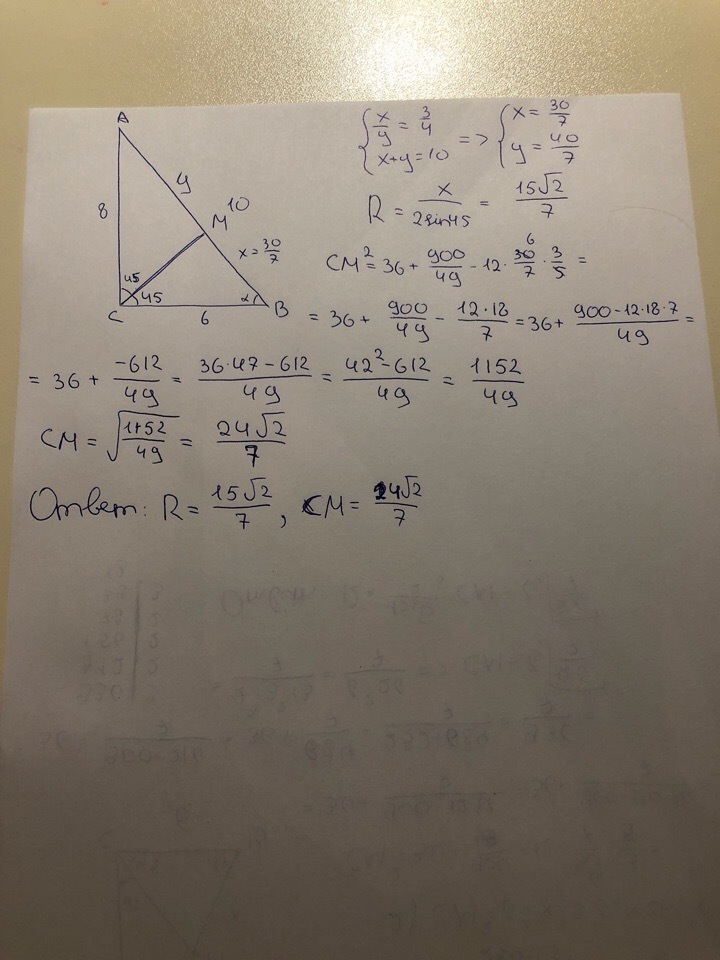 A
8
y
10
M
x = 30/7
45
45
α
C
6
B
{ x/y = 3/4
x+y=10 => { x = 30/7
y = 40/7
R = x/(2sin45) = 15√2/7
CM² = 36 + 900/49 - 12 · 30/7 · 3/5 =
6
= 36 + 900/49 - 12·18/7 = 36 + (900-12·18·7)/49 =
= 36 + -612/49 = (36·47-612)/49 = (42²-612)/49 = 1152/49
CM = √(1152/49) = 24√2/7
Ответ: R = 15√2/7, CM = 24√2/7